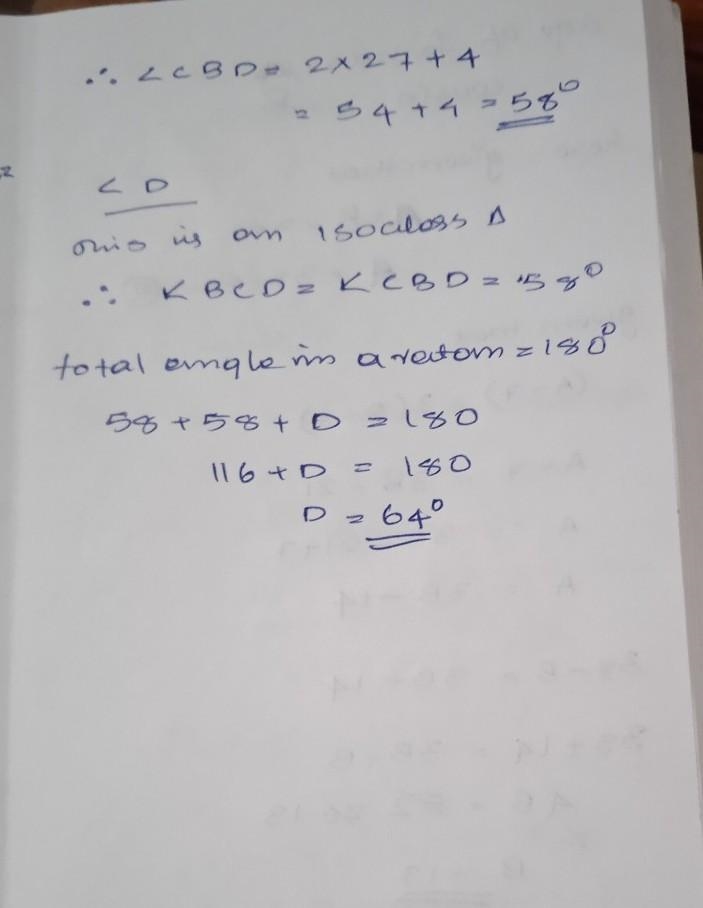 ∴ ∠CBD = 2×27+4
= 54+4 = 58°
∠D
this is an isocless Δ
∴ ∠BCD = ∠CBD = 58°
total angle in a = 180°
58+58+D = 180
116+D = 180
D = 64°